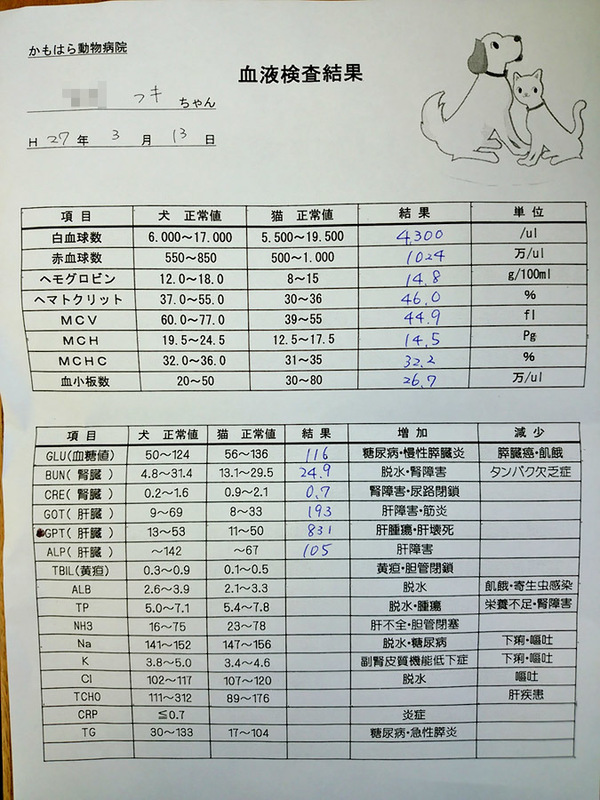 かもはら動物病院
血液検査結果
フキ ちゃん
H 27 年 3 月 13 日
項目 犬 正常値 猫 正常値 結果 単位
白血球数 6.000～17.000 5.500～19.500 4,300 /ul
赤血球数 550～850 500～1.000 1024 万/ul
ヘモグロビン 12.0～18.0 8～15 14.8 g/100ml
ヘマトクリット 37.0～55.0 30～36 46.0 %
MCV 60.0～77.0 39～55 44.9 fl
MCH 19.5～24.5 12.5～17.5 14.5 Pg
MCHC 32.0～36.0 31～35 32.2 %
血小板数 20～50 30～80 26.7 万/ul
項目 犬 正常値 猫 正常値 結果 増加 減少
GLU(血糖値) 50～124 56～136 116 糖尿病・慢性膵臓炎 膵臓癌・飢餓
BUN( 腎臓 ) 4.8～31.4 13.1～29.5 24.9 脱水・腎障害 タンパク欠乏症
CRE( 腎臓 ) 0.2～1.6 0.9～2.1 0.7 腎障害・尿路閉鎖
GOT( 肝臓 ) 9～69 8～33 193 肝障害・筋炎
GPT( 肝臓 ) 13～53 11～50 831 肝腫瘍・肝壊死
ALP( 肝臓 ) ～142 ～67 105 肝障害
TBIL(黄疸) 0.3～0.9 0.1～0.5 黄疸・胆管閉鎖
ALB 2.6～3.9 2.1～3.3 脱水 飢餓・寄生虫感染
TP 5.0～7.1 5.4～7.8 脱水・腫瘍 栄養不足・腎障害
NH3 16～75 23～78 肝不全・胆管閉塞
Na 141～152 147～156 脱水・糖尿病 下痢・嘔吐
K 3.8～5.0 3.4～4.6 副腎皮質機能低下症 下痢・嘔吐
Cl 102～117 107～120 脱水 嘔吐
TCHO 111～312 89～176 肝疾患
CRP ≦0.7 炎症
TG 30～133 17～104 糖尿病・急性膵炎